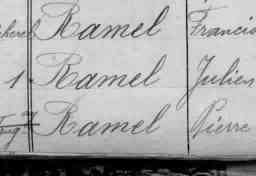 Ramel Francis
1 Ramel Julien
Ramel Pierre